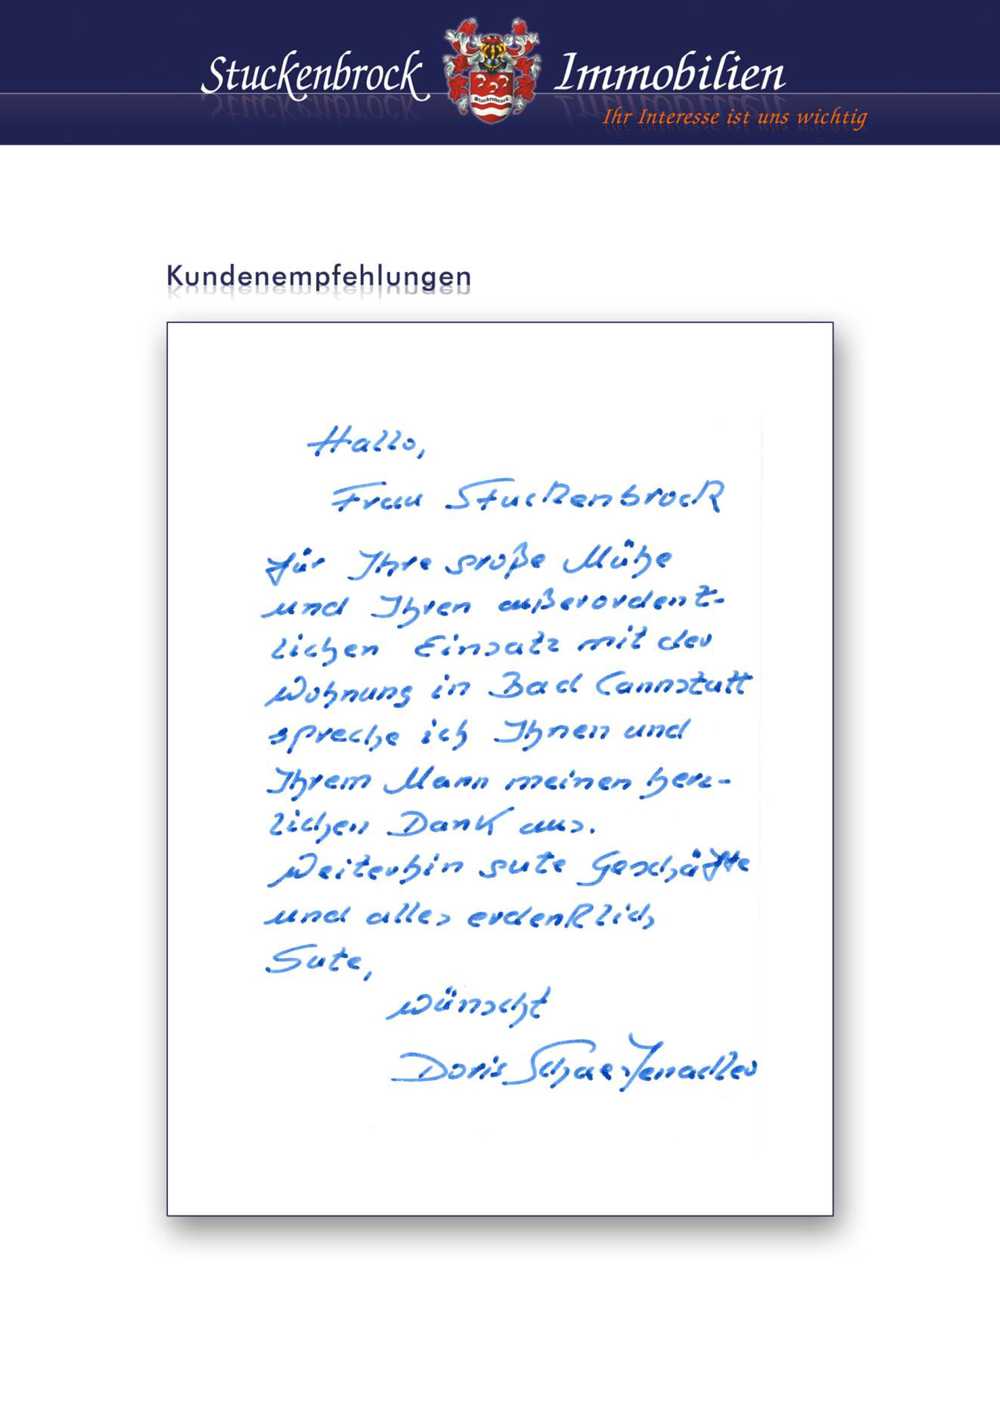 Stuckenbrock Immobilien
Stuckenbrock
Ihr Interesse ist uns wichtig
Kundenempfehlungen
Hallo,
Frau Stuckenbrock
für Ihre große Mühe
und Ihren außerordent-
lichen Einsatz mit der
Wohnung in Bad Cannstatt
spreche ich Ihnen und
Ihrem Mann meinen herz-
lichen Dank aus.
Weiterhin gute Geschäfte
und alles erdenklich
Gute,
wünscht
Doris